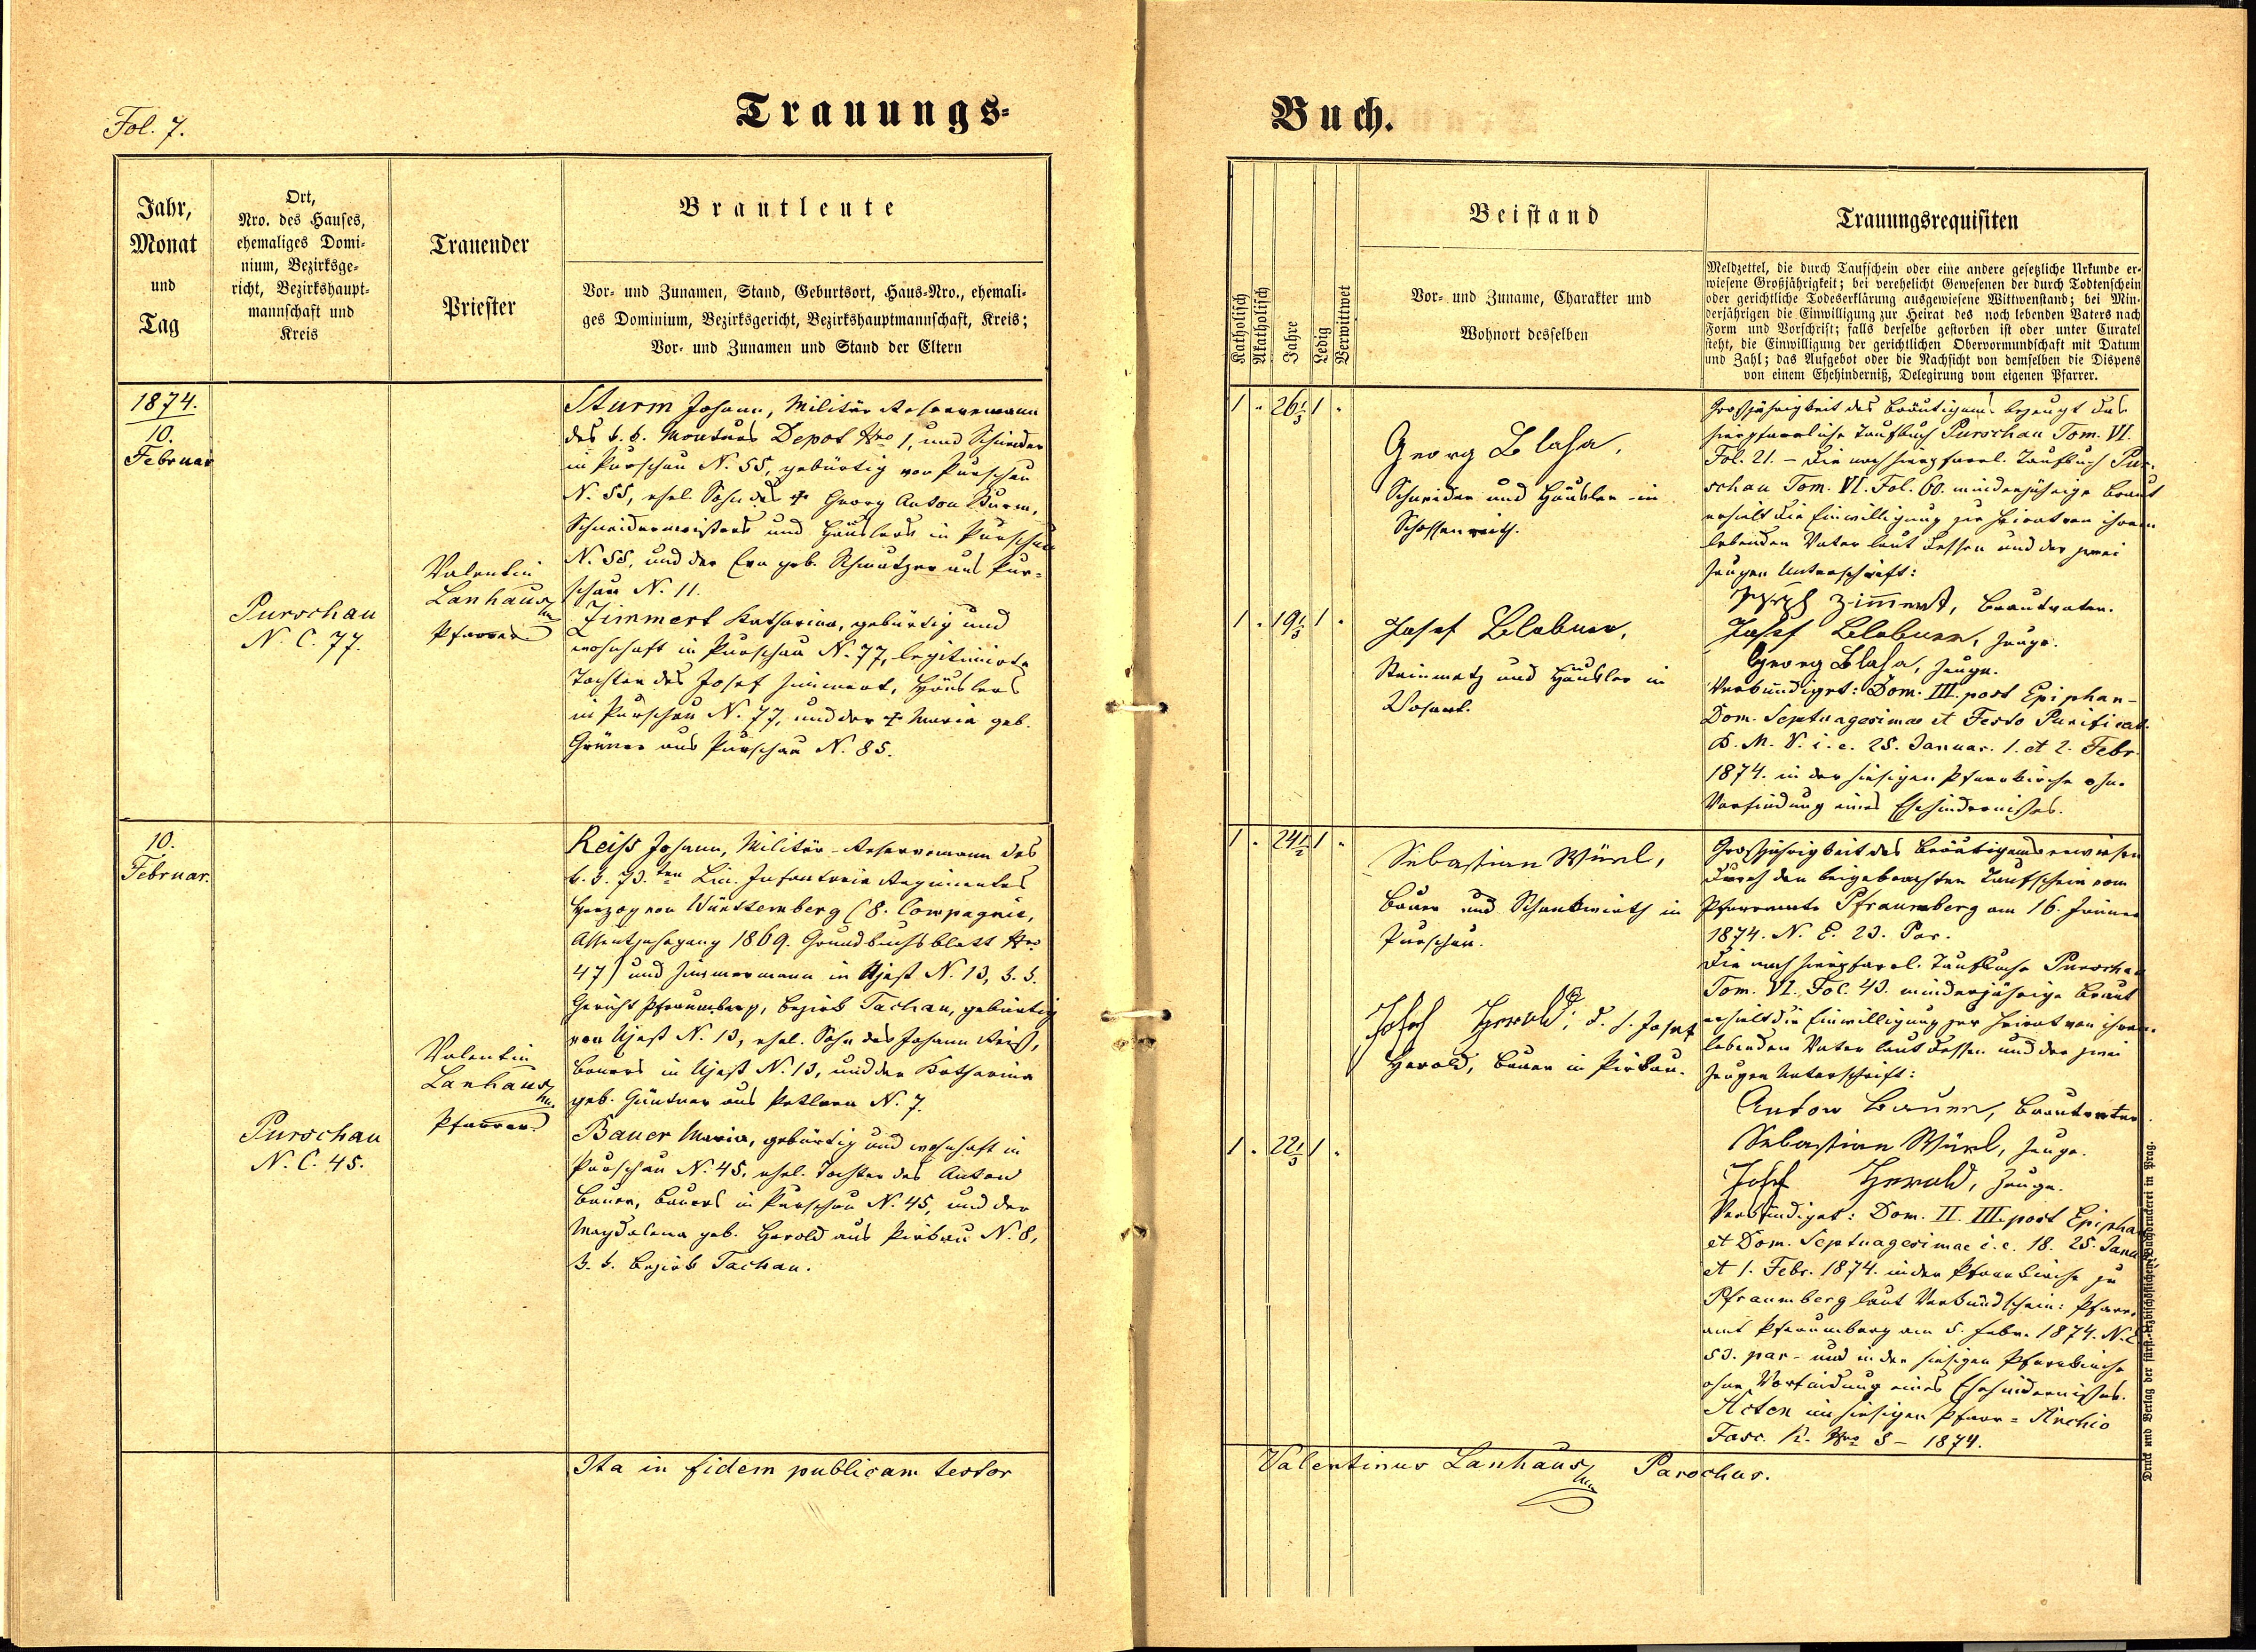 Fol. 7.
Trauungs-
Jahr,
Monat
und
Tag
Ort,
Nro. des Hauses,
ehemaliges Domi-
nium, Bezirksge-
richt, Bezirkshaupt-
mannschaft und
Kreis
Trauender
Priester
Brautleute
Vor- und Zunamen, Stand, Geburtsort, Haus-Nro., ehemali-
ges Dominium, Bezirksgericht, Bezirkshauptmannschaft, Kreis;
Vor- und Zunamen und Stand der Eltern
1874.
10.
Februar
Purschau
N. C. 77.
Valentin
Lanhaus
Pfarrer
Sturm Johann, Militär Reservemann
des k. k. Monturs Depot Nro 1, und Schneider
in Purschau N. 55, gebürtig von Purschau
N. 55, ehel. Sohn des † Georg Anton Sturm,
Schneidermeisters und Häuslers in Purschau
N. 55, und der Eva geb. Schmutzer aus Pur-
schau N. 11.
Zimmert Katharina, gebürtig und
wohnhaft in Purschau N. 77, legitimirte
Tochter des Josef Zimmert, Häuslers
in Purschau N. 77, und der † Maria geb.
Grüner aus Purschau N. 85.
10.
Februar.
Purschau
N. C. 45.
Valentin
Lanhaus
Pfarrer
Reiß Johann, Militär-Reservemann des
k. k. 73.ten Lin. Infanterie Regimentes
Herzog von Württemberg (8. Compagnie,
Assentjahrgang 1869. Grundbuchsblatt Nro
47) und Zimmermann in Ujest N. 13, k. k.
Gericht Pfraumberg, Bezirk Tachau, gebürtig
von Ujest N. 13, ehel. Sohn des Johann Reiß,
Bauers in Ujest N. 13, und der Katharina
geb. Güntner aus Petlarn N. 7.
Bauer Maria, gebürtig und wohnhaft in
Purschau N. 45, ehel. Tochter des Anton
Bauer, Bauers in Purschau N. 45, und der
Magdalena geb. Herold aus Pirkau N. 8,
k. k. Bezirk Tachau.
Ita in fidem publicam testor
Buch.
Katholisch
Akatholisch
Jahre
Ledig
Verwittwet
Beistand
Vor- und Zuname, Charakter und
Wohnort desselben
Trauungsrequisiten
Meldzettel, die durch Taufschein oder eine andere gesetzliche Urkunde er-
wiesene Großjährigkeit; bei verehelicht Gewesenen der durch Todtenschein
oder gerichtliche Todeserklärung ausgewiesene Wittwenstand; bei Min-
derjährigen die Einwilligung zur Heirat des noch lebenden Vaters nach
Form und Vorschrift; falls derselbe gestorben ist oder unter Curatel
steht, die Einwilligung der gerichtlichen Obervormundschaft mit Datum
und Zahl; das Aufgebot oder die Nachsicht von demselben die Dispens
von einem Ehehinderniß, Delegirung vom eigenen Pfarrer.
1 . 26 1/3 1 .
Georg Blaha,
Schneider und Häusler in
Schossenreith.
1 . 19 1/3 1 .
Josef Blobner,
Steinmetz und Häusler in
Großjährigkeit des Bräutigams bezeugt das
hierpfarrliche Taufbuch Purschau Tom. VI.
Fol. 21. – Die nach hierpfarrl. Taufbuch Pur-
schau Tom. VI. Fol. 60. minderjährige Braut
erhielt die Einwilligung zur Heirat von ihrem
lebenden Vater laut dessen und der zwei
Zeugen Unterschrift:
Joseph Zimmert, Brautvater.
Josef Blobner, Zeuge.
Georg Blaha, Zeuge.
Verkündiget: Dom. III. post Epiphan-
Dom. Septuagesimae et Festo Purificat.
B. M. V. i. e. 25. Januar. 1. et 2. Febr.
1874. in der hiesigen Pfarrkirche ohne
Vorfindung eines Ehehindernißes.
1 . 24 1/2 1 .
Sebastian Würl,
Bauer und Schankwirth in
Purschau.
Josef Herold, d. h. Josef
Herold, Bauer in Pirkau.
1 . 22 1/3 1 .
Großjährigkeit des Bräutigams erwiesen
durch den beigebrachten Taufschein vom
Pfarramte Pfraumberg am 16. Jänner
1874. N. E. 23. Par.
Die nach hierpfarrl. Taufbuche Purschau
Tom. VI. Fol. 43. minderjährige Braut
erhielt die Einwilligung zur Heirat von ihrem
lebenden Vater laut dessen und der zwei
Zeugen Unterschrift:
Anton Bauer, Brautvater
Sebastian Würl, Zeuge.
Josef Herold, Zeuge.
Verkündiget: Dom. II. III. post Epiphan
et Dom. Septuagesimae i. e. 18. 25. Janu
et 1. Febr. 1874. in der Pfarrkirche zu
Pfraumberg laut Verkündschein: Pfarr-
amt Pfraumberg am 5. Febr. 1874. N. E
53. par- und in der hiesigen Pfarrkirche
ohne Vorfindung eines Ehehindernißes.
Acten im hiesigen Pfarr-Archiv
Fasc. K. Nro 8 – 1874.
Valentinus Lanhaus Parochus.
Druck und Verlag der fürst-erzbischöflichen Buchdruckerei in Prag.